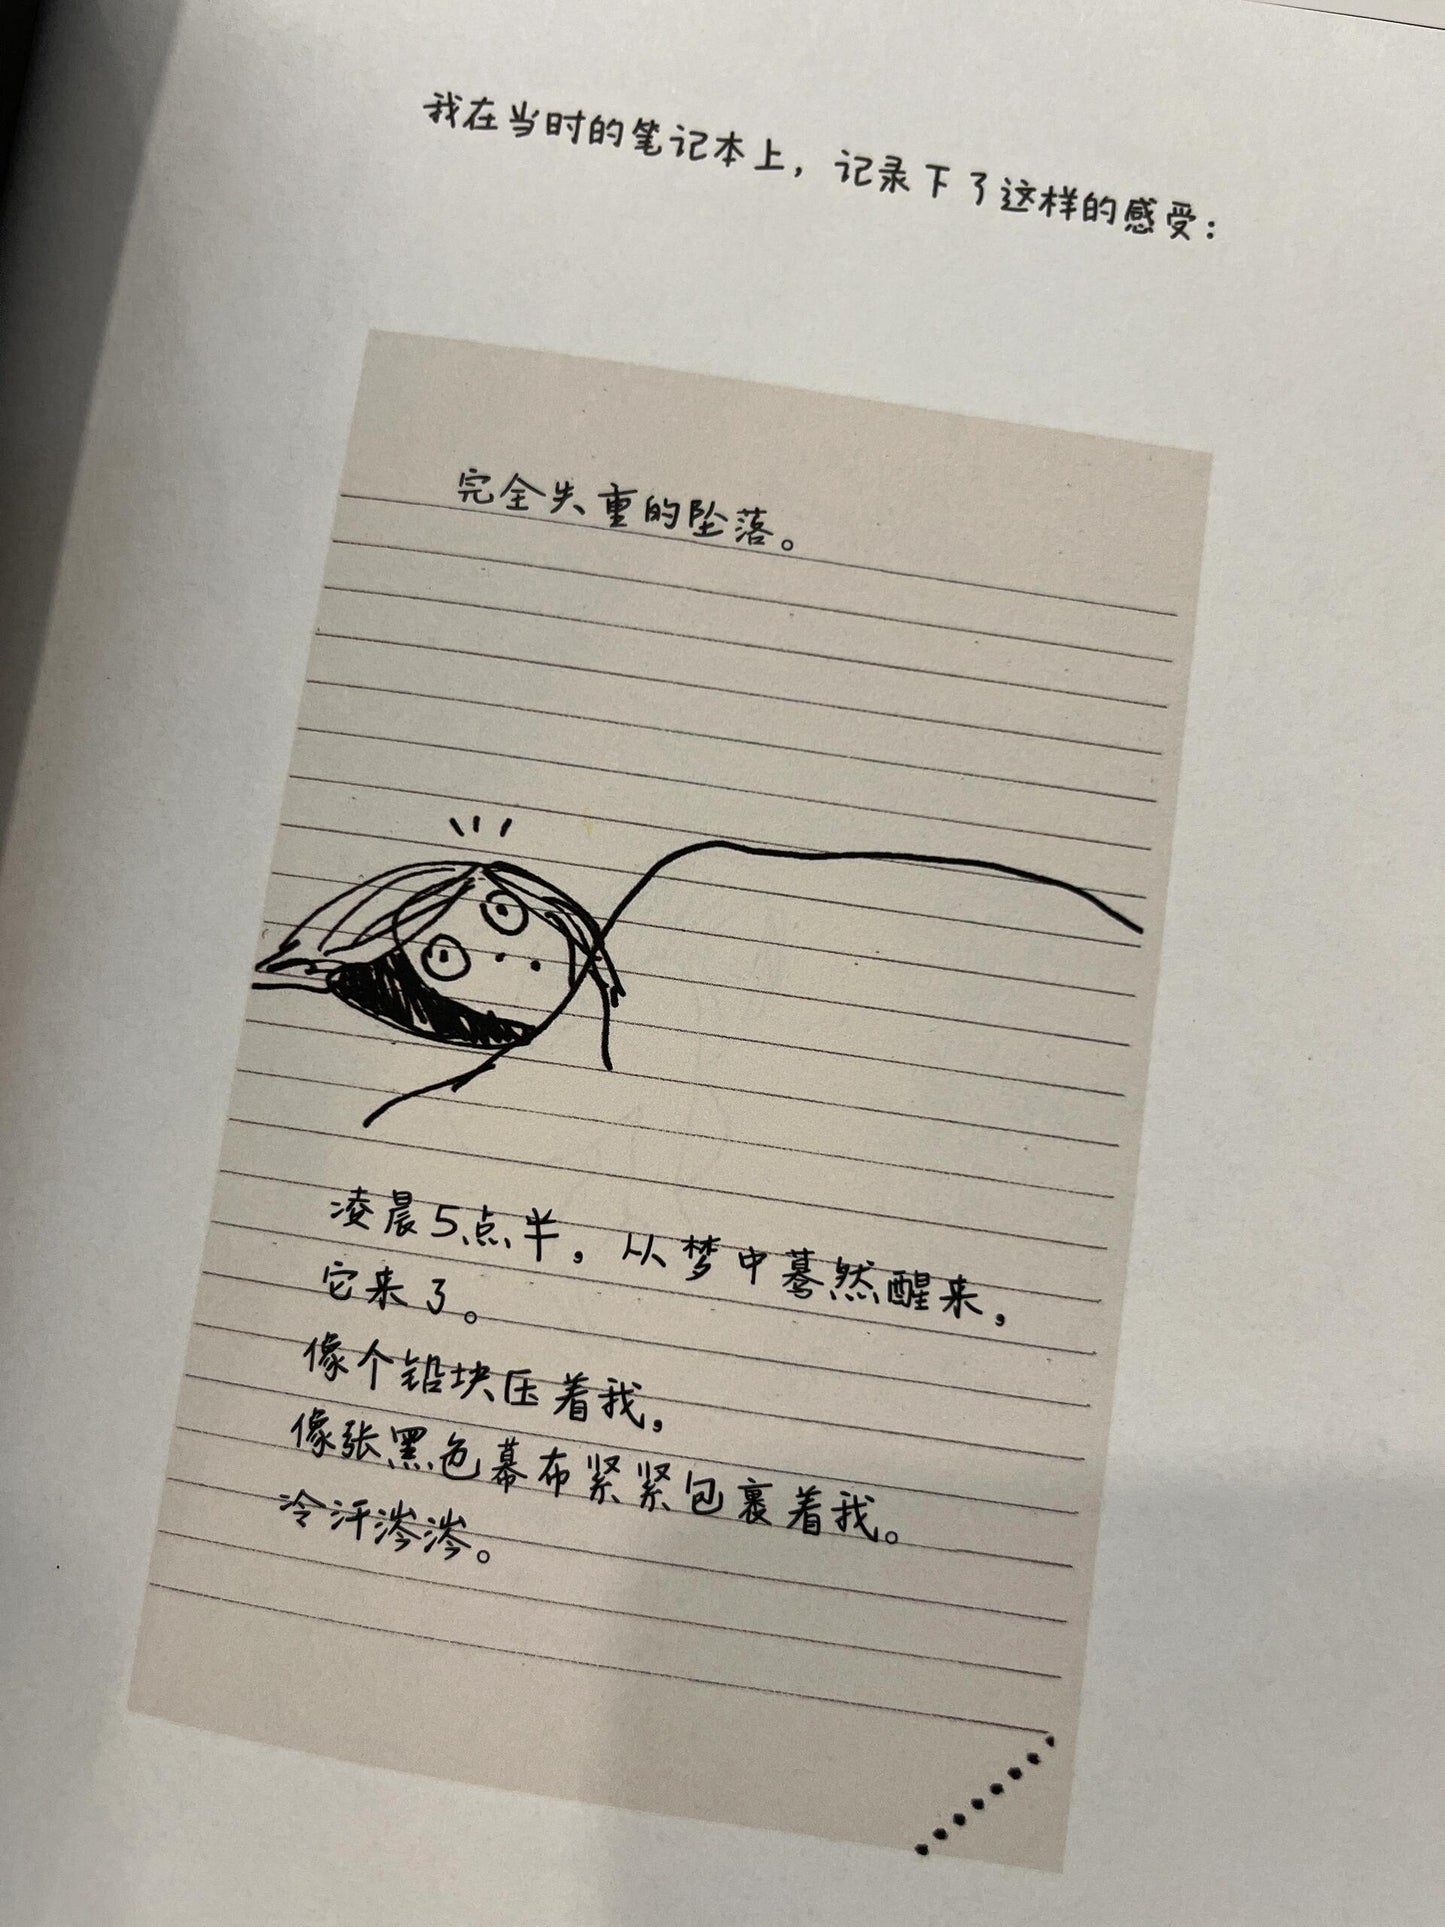 我在当时的笔记本上，记录下了这样的感受：
完全失重的坠落。
凌晨5点半，从梦中蓦然醒来，
它来了。
像个铅块压着我，
像张黑色幕布紧紧包裹着我。
冷汗涔涔。